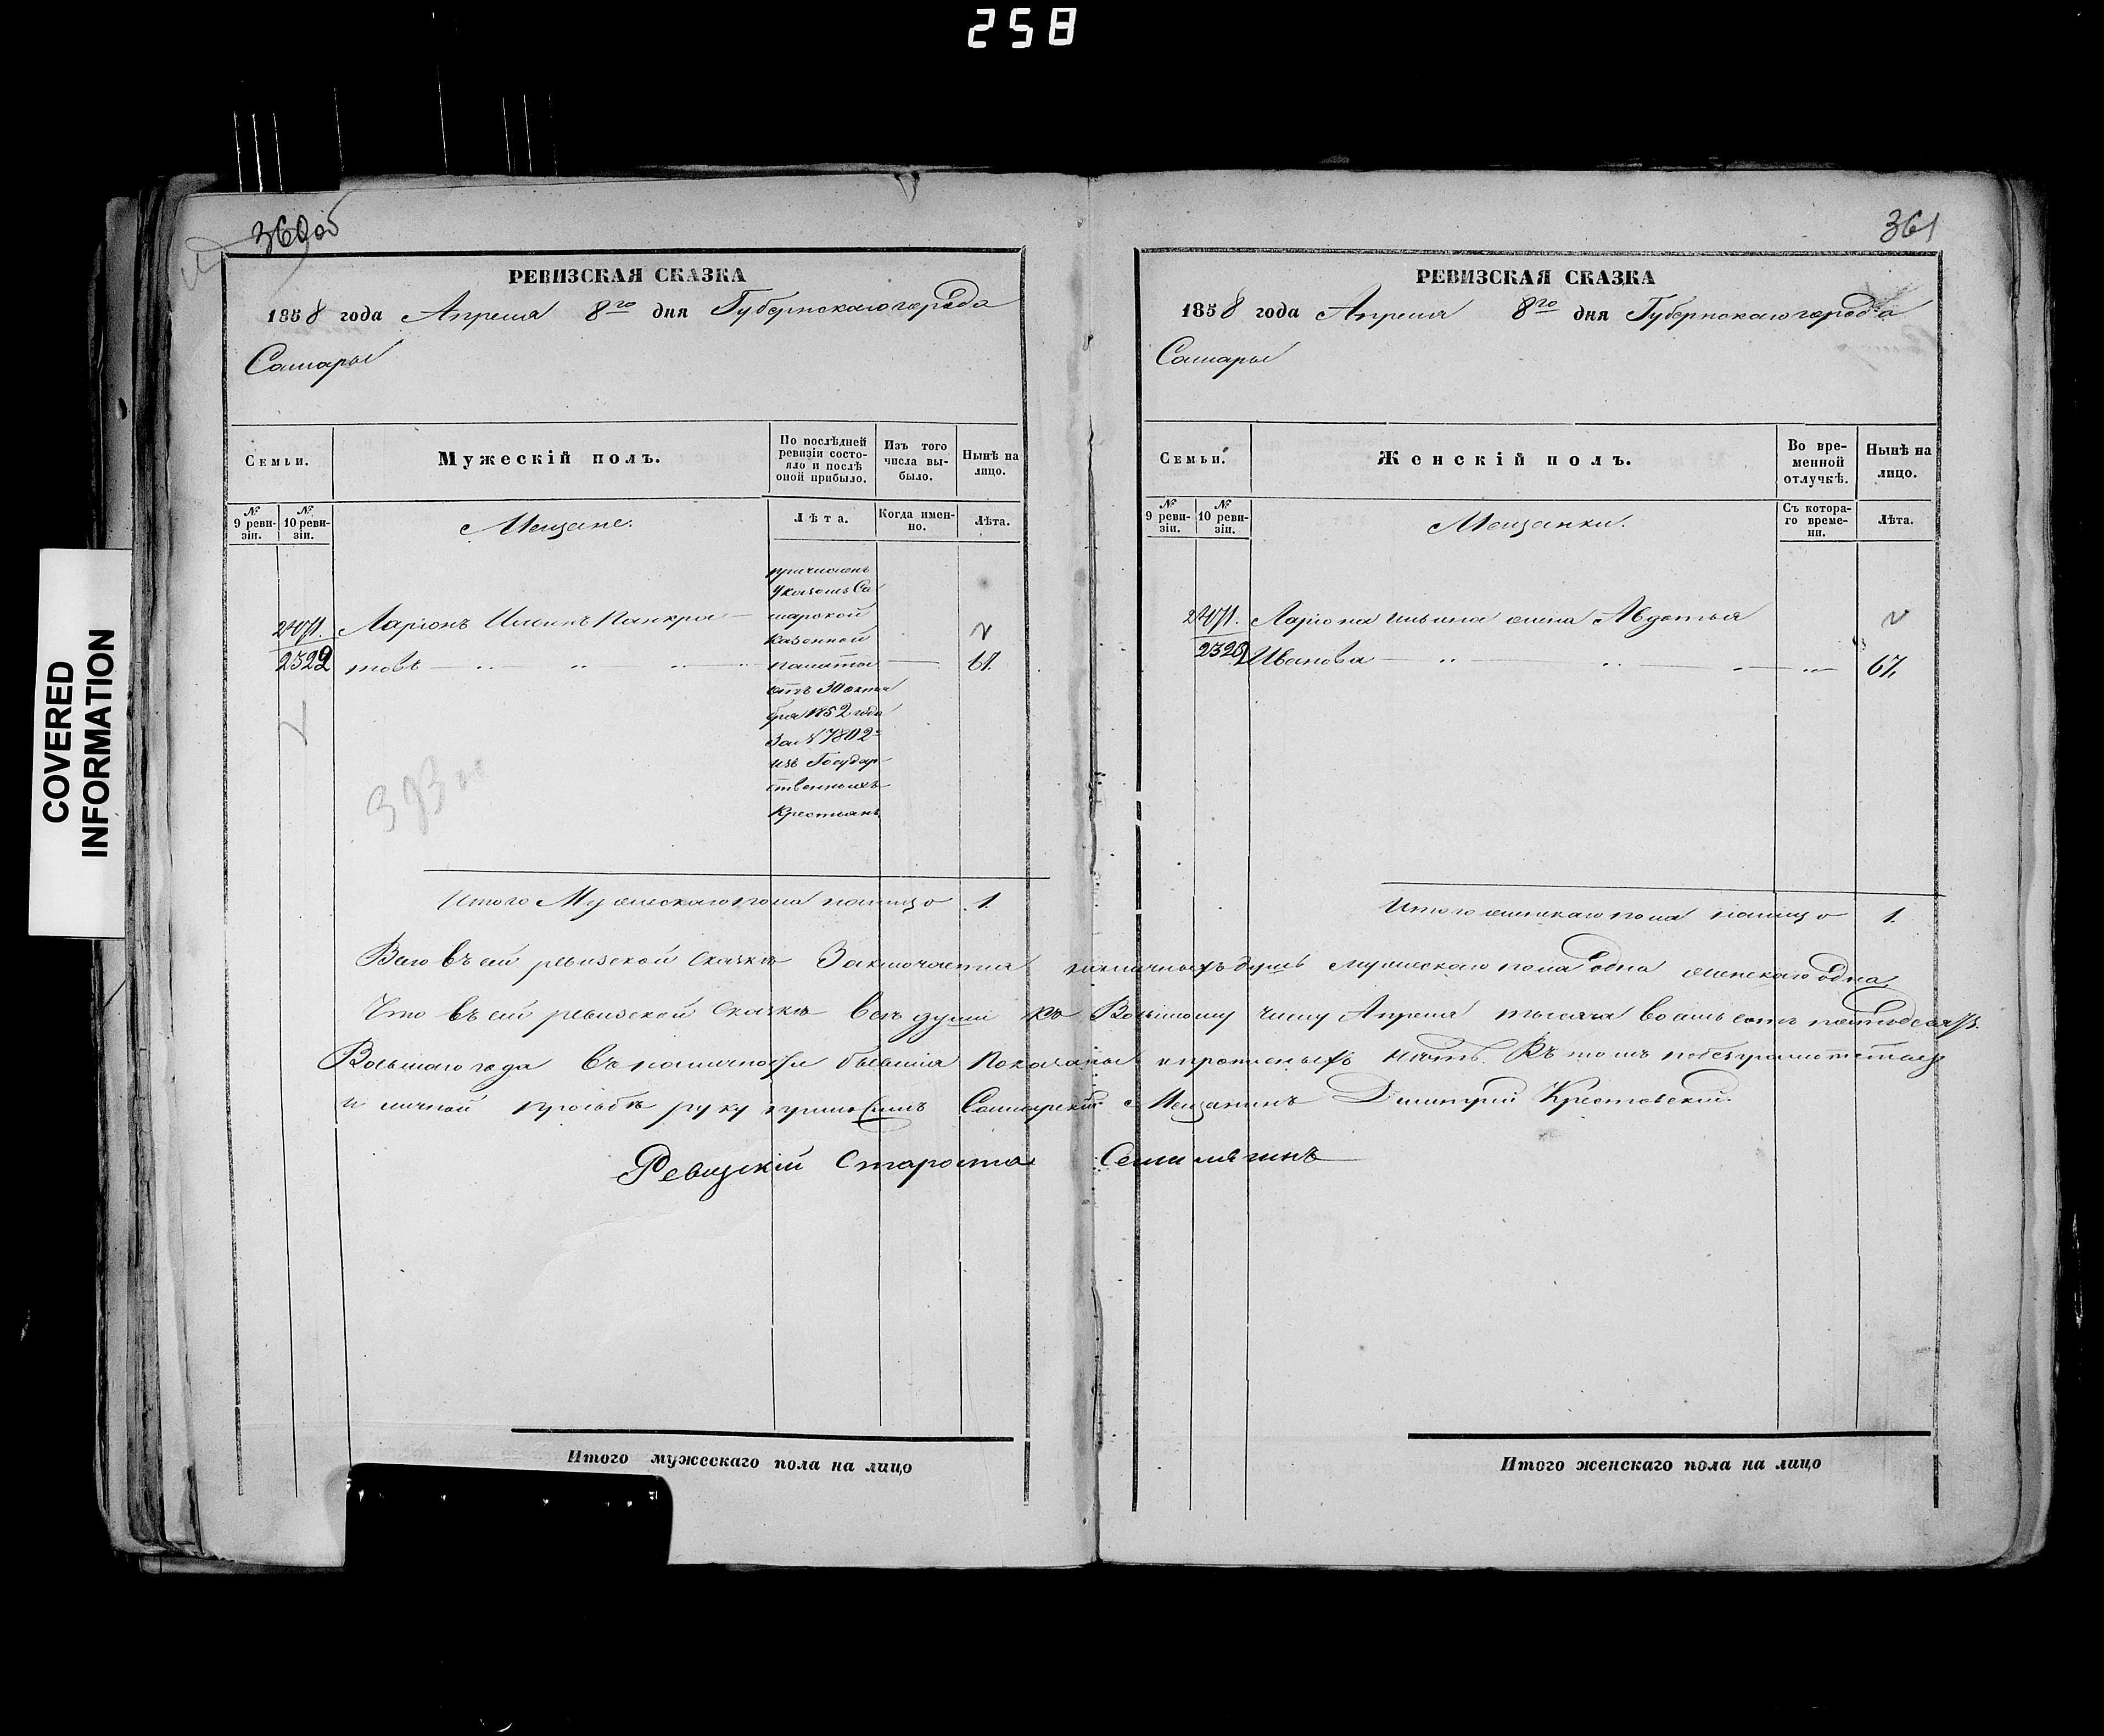 258
COVERED
INFORMATION
360 об
РЕВИЗСКАЯ СКАЗКА
1858 года Апреля 8го дня Губернскаго города
Самары
Семьи.
Мужескій полъ.
По послѣдней ревизіи состояло и послѣ оной прибыло.
Изъ того числа выбыло.
Нынѣ на лицо.
№ 9 ревизіи.
№ 10 ревизіи.
Мещане.
Лѣта.
Когда именно.
Лѣта.
причисленъ
указомъ Са
марской
казенной
палаты
отъ 30 октя
бря 1852 года
за № 7802
изъ Государ
ственныхъ
крестьянъ
2471. Ларіонъ Ильинъ Панкра
2322 товъ 67.
Итого Мужескаго пола налицо 1.
361
РЕВИЗСКАЯ СКАЗКА
1858 года Апреля 8го дня Губернскаго города
Самары
Семьи.
Женскій полъ.
Во временной отлучкѣ.
Нынѣ на лицо.
№ 9 ревизіи.
№ 10 ревизіи.
Мещанки.
Съ котораго времени.
Лѣта.
2471. Ларіона Ильина жена Авдотья
Иванова 67.
Итого женскаго пола налицо 1.
Всего въ сей ревизской сказке Заключается наличныхъ душъ мужескаго пола одна женскаго одна
Что въ сей ревизской сказке все души къ Восьмому числу Апреля тысяча восемь сотъ пятьдесятъ
Восьмаго года въ наличности бывшія Показаны и прописныхъ нѣтъ. Въ томъ
и личной просьбе руку приложилъ Самарский Мещанинъ Дмитрий Крестовский.
Ревизскій Староста
Итого мужескаго пола на лицо
Итого женскаго пола на лицо